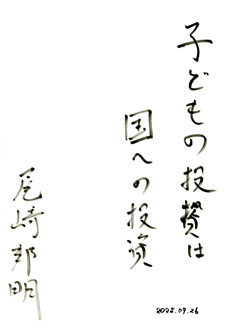 子どもの投資は
国への投資
尾崎邦明
2025.09.26